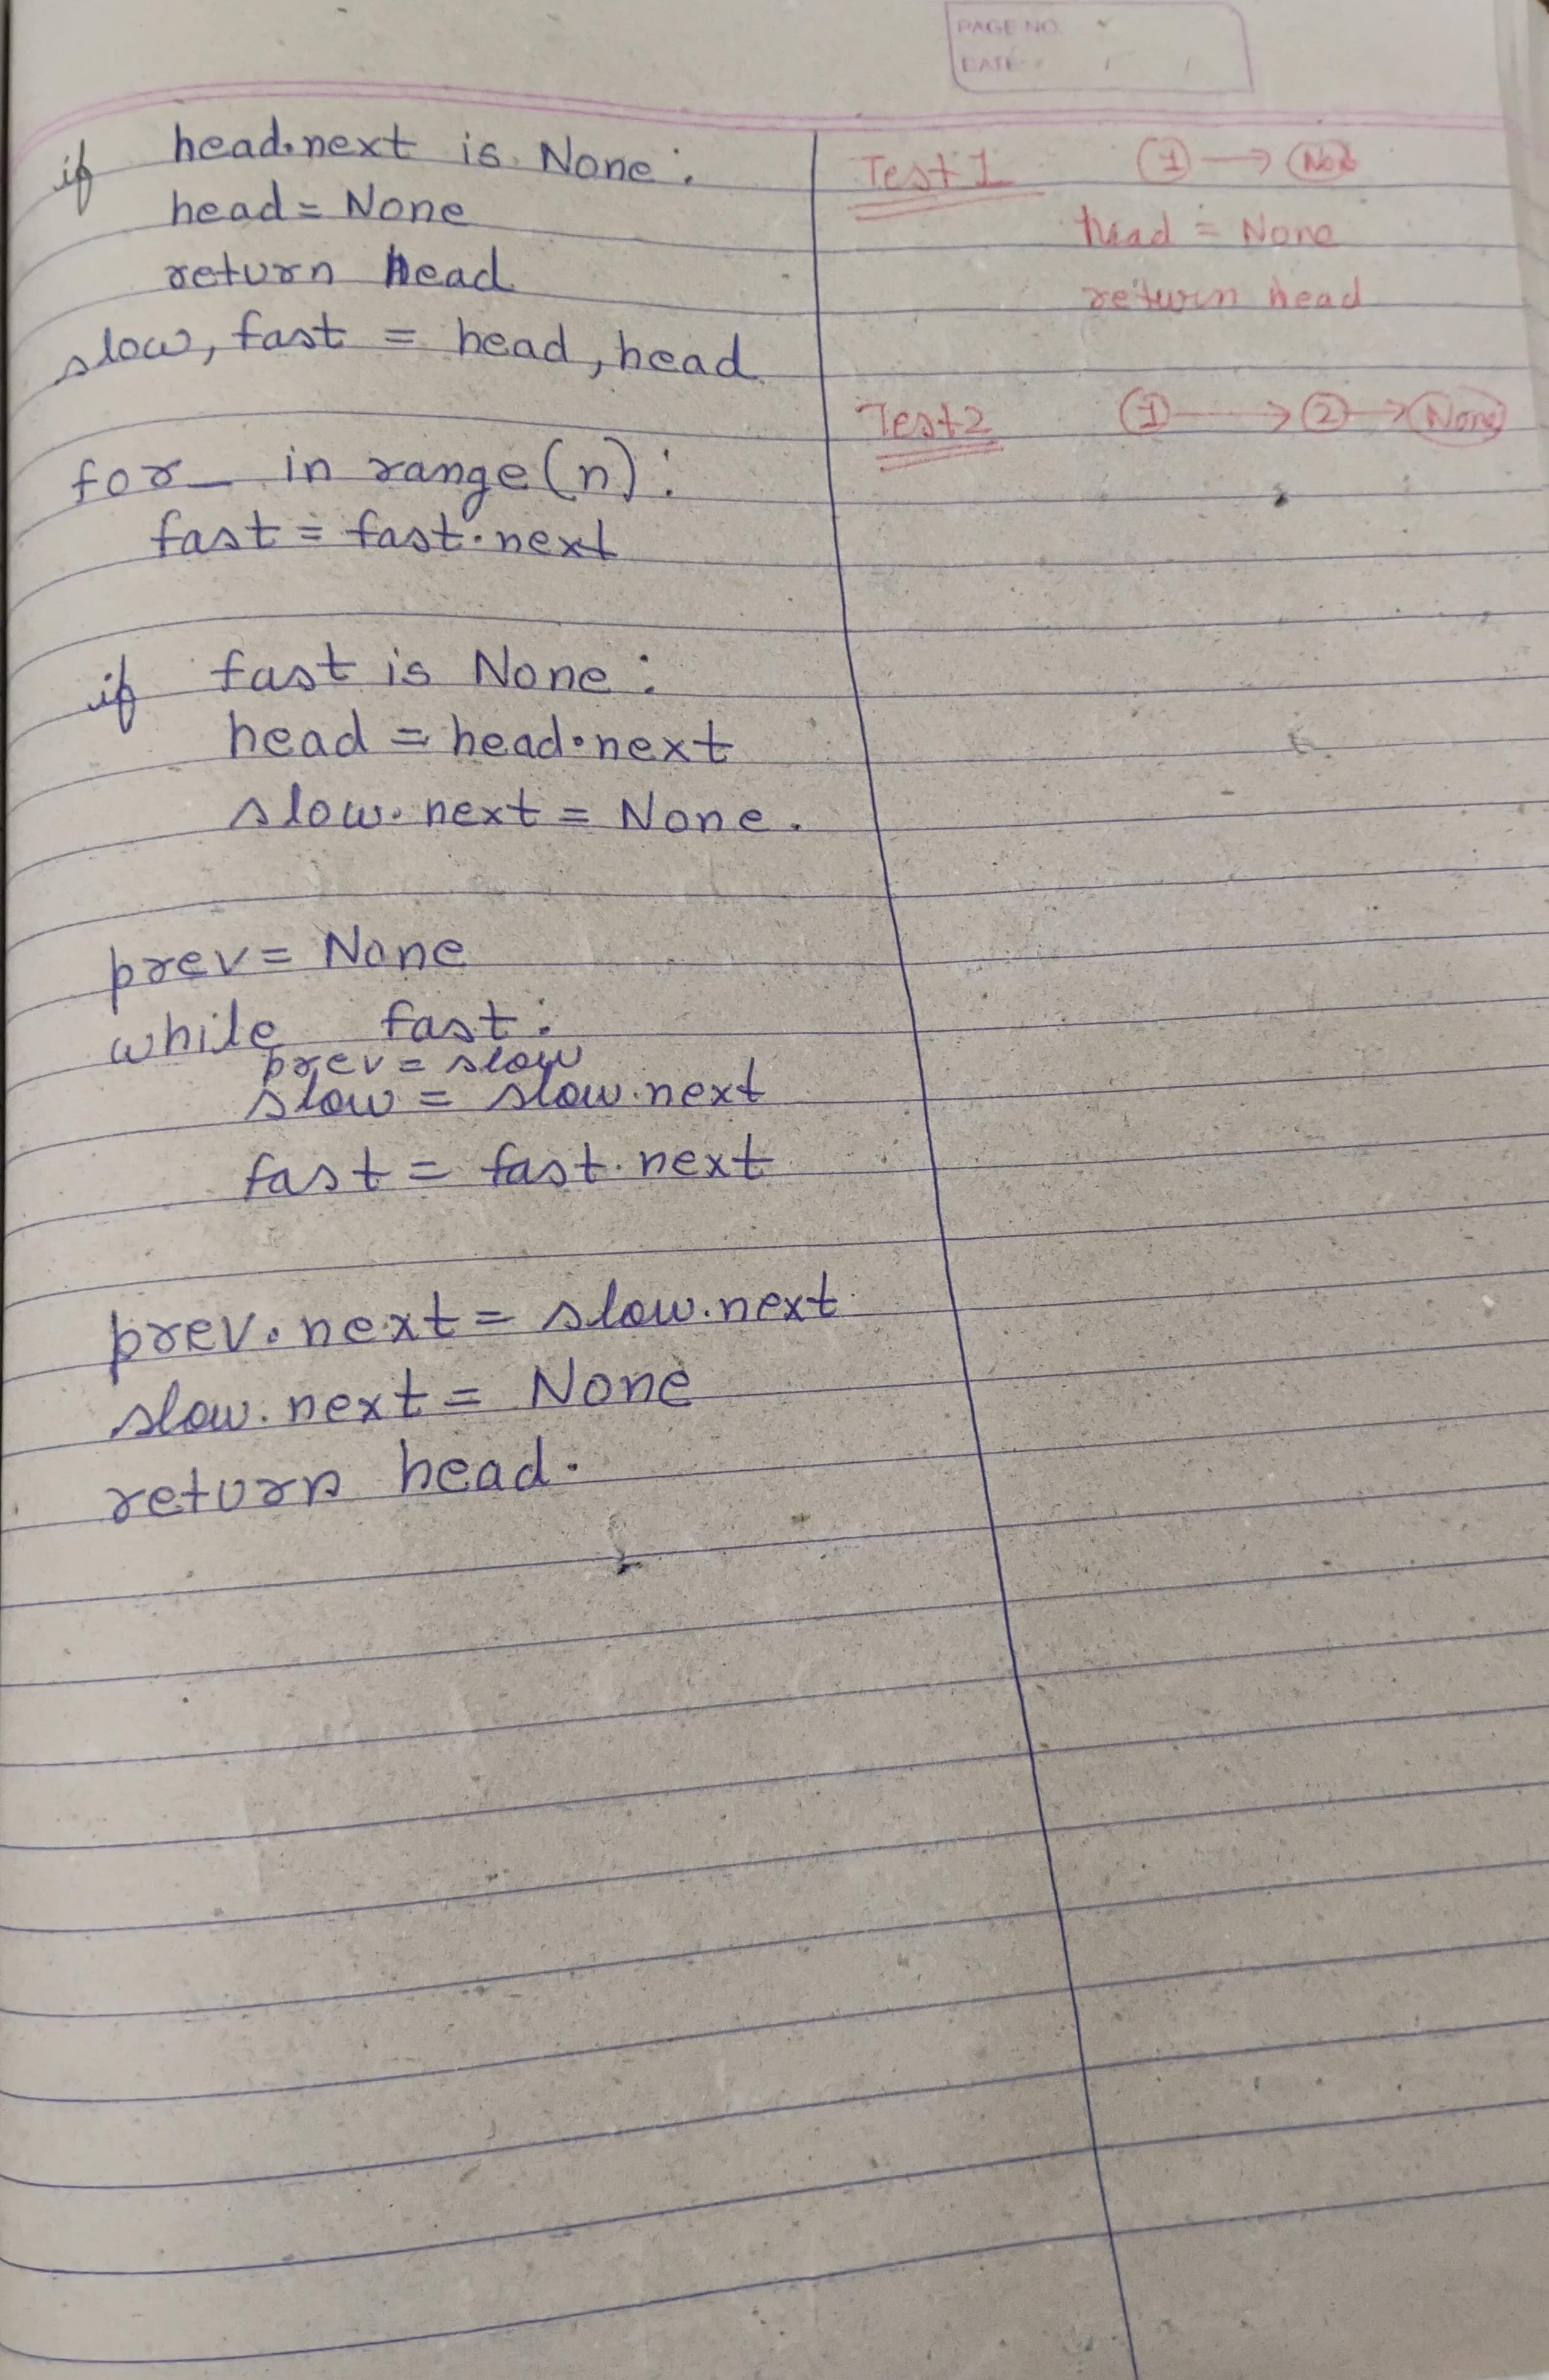 PAGE NO.
DATE
if head.next is None:
head = None
return head
slow, fast = head, head
for _ in range(n):
fast = fast.next
if fast is None:
head = head.next
slow.next = None.
prev = None
while fast:
prev = slow
slow = slow.next
fast = fast.next
prev.next = slow.next
slow.next = None
return head.
Test 1 1 → None
head = None
return head
Test 2 1 → 2 → None